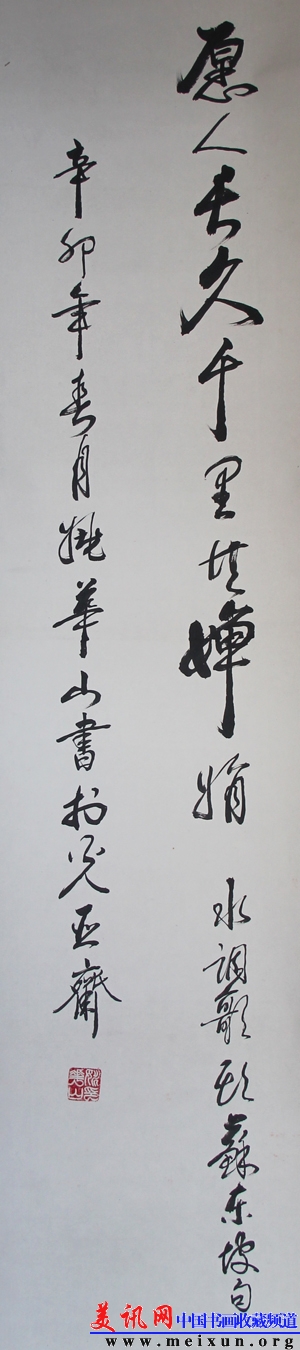 愿人长久千里共婵娟 水调歌头蘇东坡句
辛卯年春月姚華山書於齋
美讯网 中国书画收藏频道
www.meixun.org